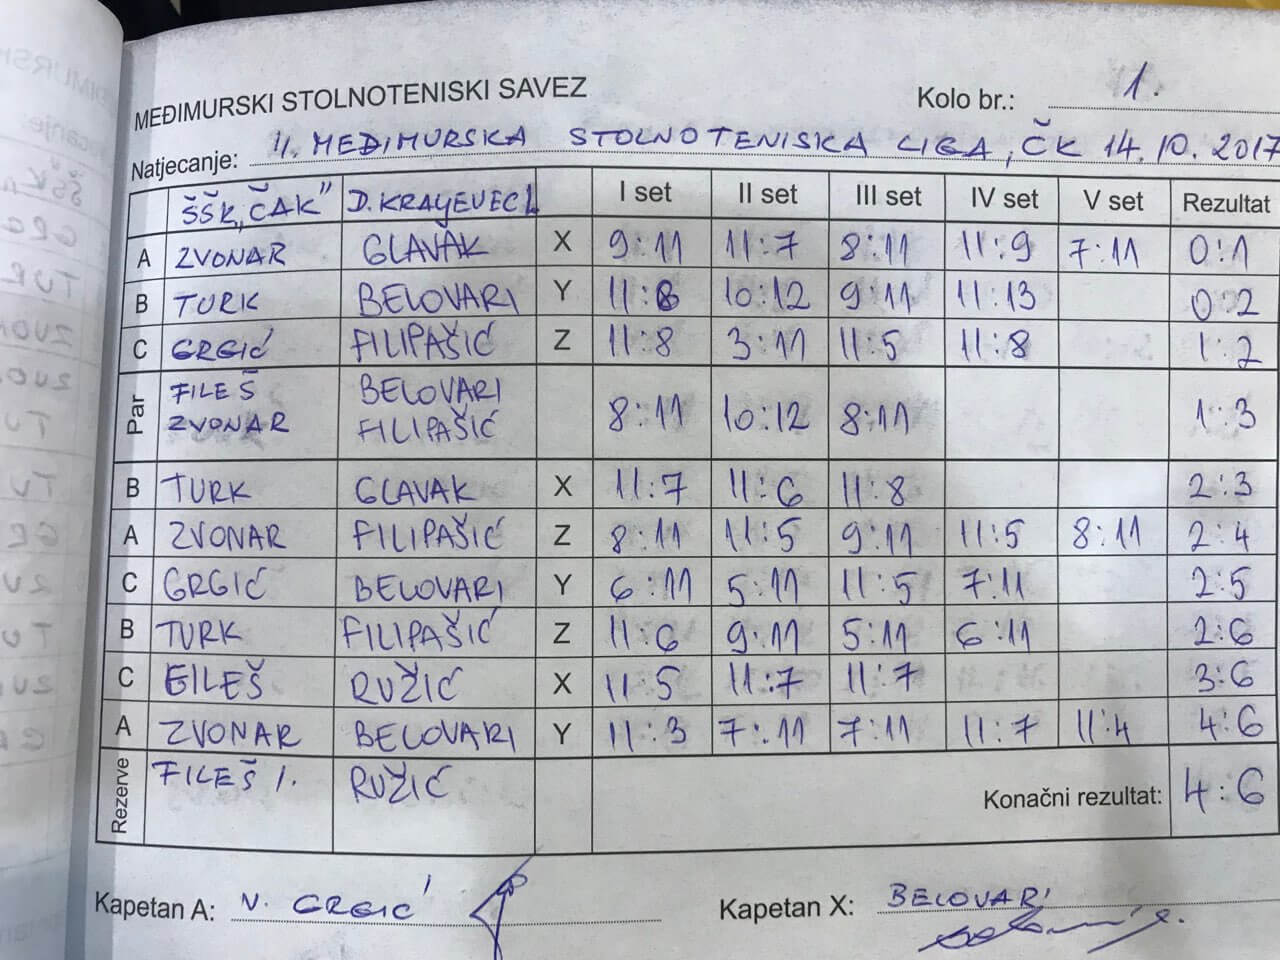 MEĐIMURSKI STOLNOTENISKI SAVEZ
Kolo br.: 1.
Natjecanje: II. MEĐIMURSKA STOLNOTENISKA LIGA, ČK 14.10.2017
ŠŠK „ČAK” D. KRALJEVEC I set II set III set IV set V set Rezultat
A ZVONAR GLAVAK X 9:11 11:7 8:11 11:9 7:11 0:1
B TURK BELOVARI Y 11:8 10:12 9:11 11:13 0:2
C GRGIĆ FILIPAŠIĆ Z 11:8 3:11 11:5 11:8 1:2
Par FILEŠ ZVONAR BELOVARI FILIPAŠIĆ 8:11 10:12 8:11 1:3
B TURK GLAVAK X 11:7 11:6 11:8 2:3
A ZVONAR FILIPAŠIĆ Z 8:11 11:5 9:11 11:5 8:11 2:4
C GRGIĆ BELOVARI Y 6:11 5:11 11:5 7:11 2:5
B TURK FILIPAŠIĆ Z 11:6 9:11 5:11 6:11 2:6
C FILEŠ RUŽIĆ X 11:5 11:7 11:7 3:6
A ZVONAR BELOVARI Y 11:3 7:11 7:11 11:7 11:4 4:6
Rezerve FILEŠ I. RUŽIĆ Konačni rezultat: 4:6
Kapetan A: N. GRGIĆ Kapetan X: BELOVARI